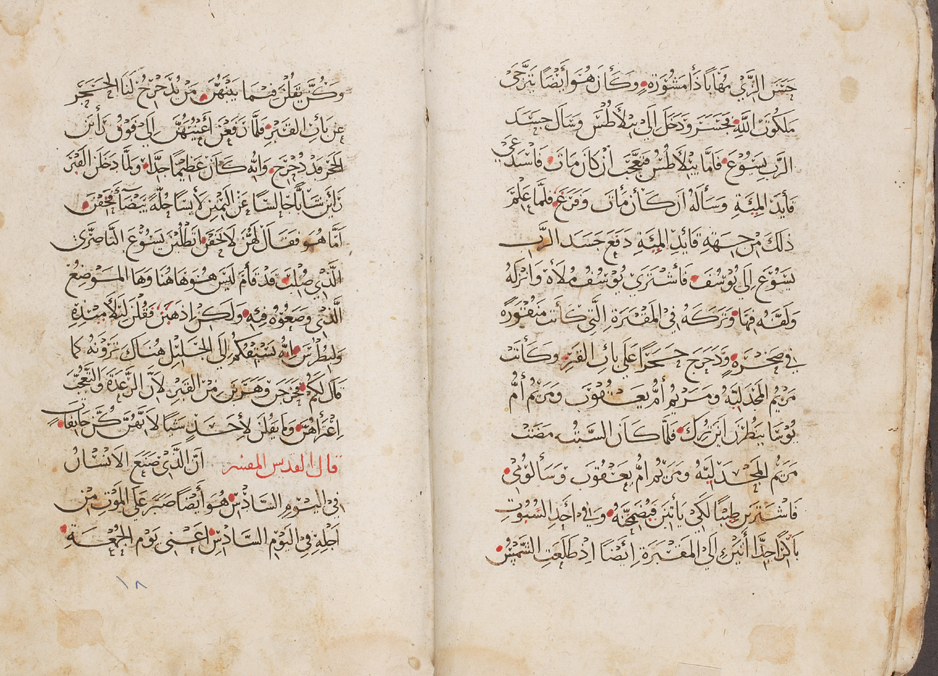 حسن الزي مهابا ذا مشورة وكان هو ايضا يترجى
ملكوت الله فجسر ودخل الى بيلاطس وسال جسد
الرب يسوع فاما بيلاطس فتعجب ان كان مات فاستدعى
قايد المئة وساله ان كان مات وفرغ فلما علم
ذلك من جهة قايد المئة دفع جسد الرب
يسوع الى يوسف فاشترى يوسف ملاة وانزله
ولفه فيها وتركه في المقبرة التي كانت منقورة
في صخرة ودحرج حجرا على باب القبر وكانت
مريم المجدلية ومريم ام يعقوب ومريم ام
يوسا ينظرن اين ترك فلما كان السبت مضت
مريم المجدلية ومريم ام يعقوب وسالومي
فاشترين طيبا لكي ياتين فيضمخنه وفي احد السبوت
باكرا جدا اتين الى المقبرة ايضا اذ طلعت الشمس
وكن يقلن فيما بينهن من يدحرج لنا الحجر
عن باب القبر فلما رفعن اعينهن الى فوق راين
الحجر قد دحرج وانه كان عظيما جدا ولما دخلن القبر
راين شابا جالسا عن اليمين لابسا حلة بيضا فخفن
اما هو فقال لهن لا تخفن انطلبن يسوع الناصري
الذي صلب قد قام ليس هو هاهنا وها الموضع
الذي وضعوه فيه ولكن اذهبن فقلن لتلاميذه
ولبطرس انه يسبقكم الى الجليل هناك ترونه كما
قال لكم فخرجن وهربن من القبر لان الرعدة والتعجب
اعتراهن ولم يقلن لاحد شيا لانهن كن خايفات
قال القديس المفسر ان الذي صنع الانسان
في اليوم السادس هو ايضا صبر على الموت من
اجله في اليوم السادس اعني يوم الجمعة
١٨